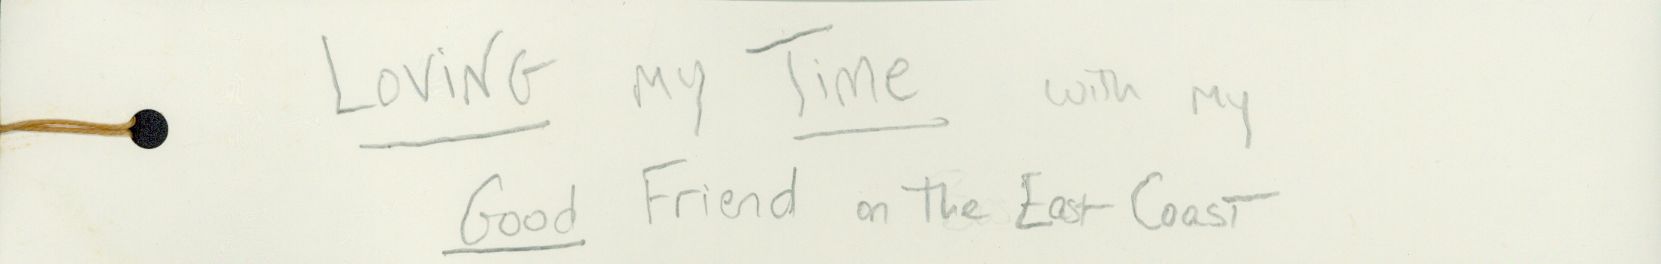 LOVING MY TIME with MY
Good Friend on The East Coast